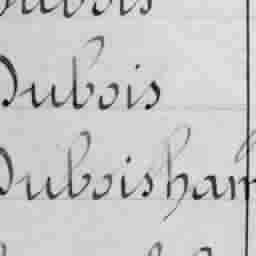 Dubois
Dubois
Duboisham